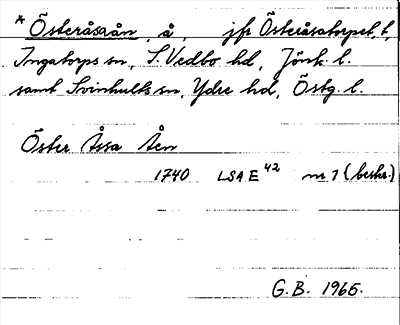 * Österåsaån, å, jfr Österåsatorpet, t,
Ingatorps sn, S. Vedbo hd, Jönk. l.
samt Svinhults sn, Ydre hd, Östg. l.
Öster Åssa Åen
1740 LSA E 42 nr 7 (beskr.)
G.B. 1965.